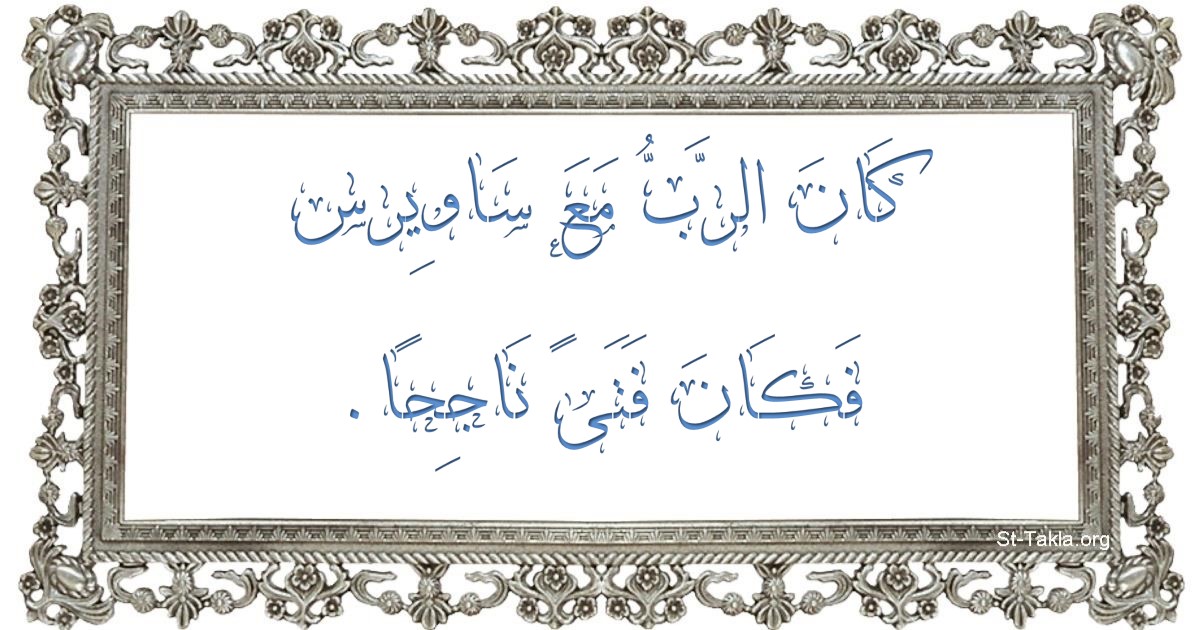 كَانَ الرَّبُّ مَعَ سَاويِرس
فَكَانَ فَتَىً نَاجِحًا .
St-Takla.org